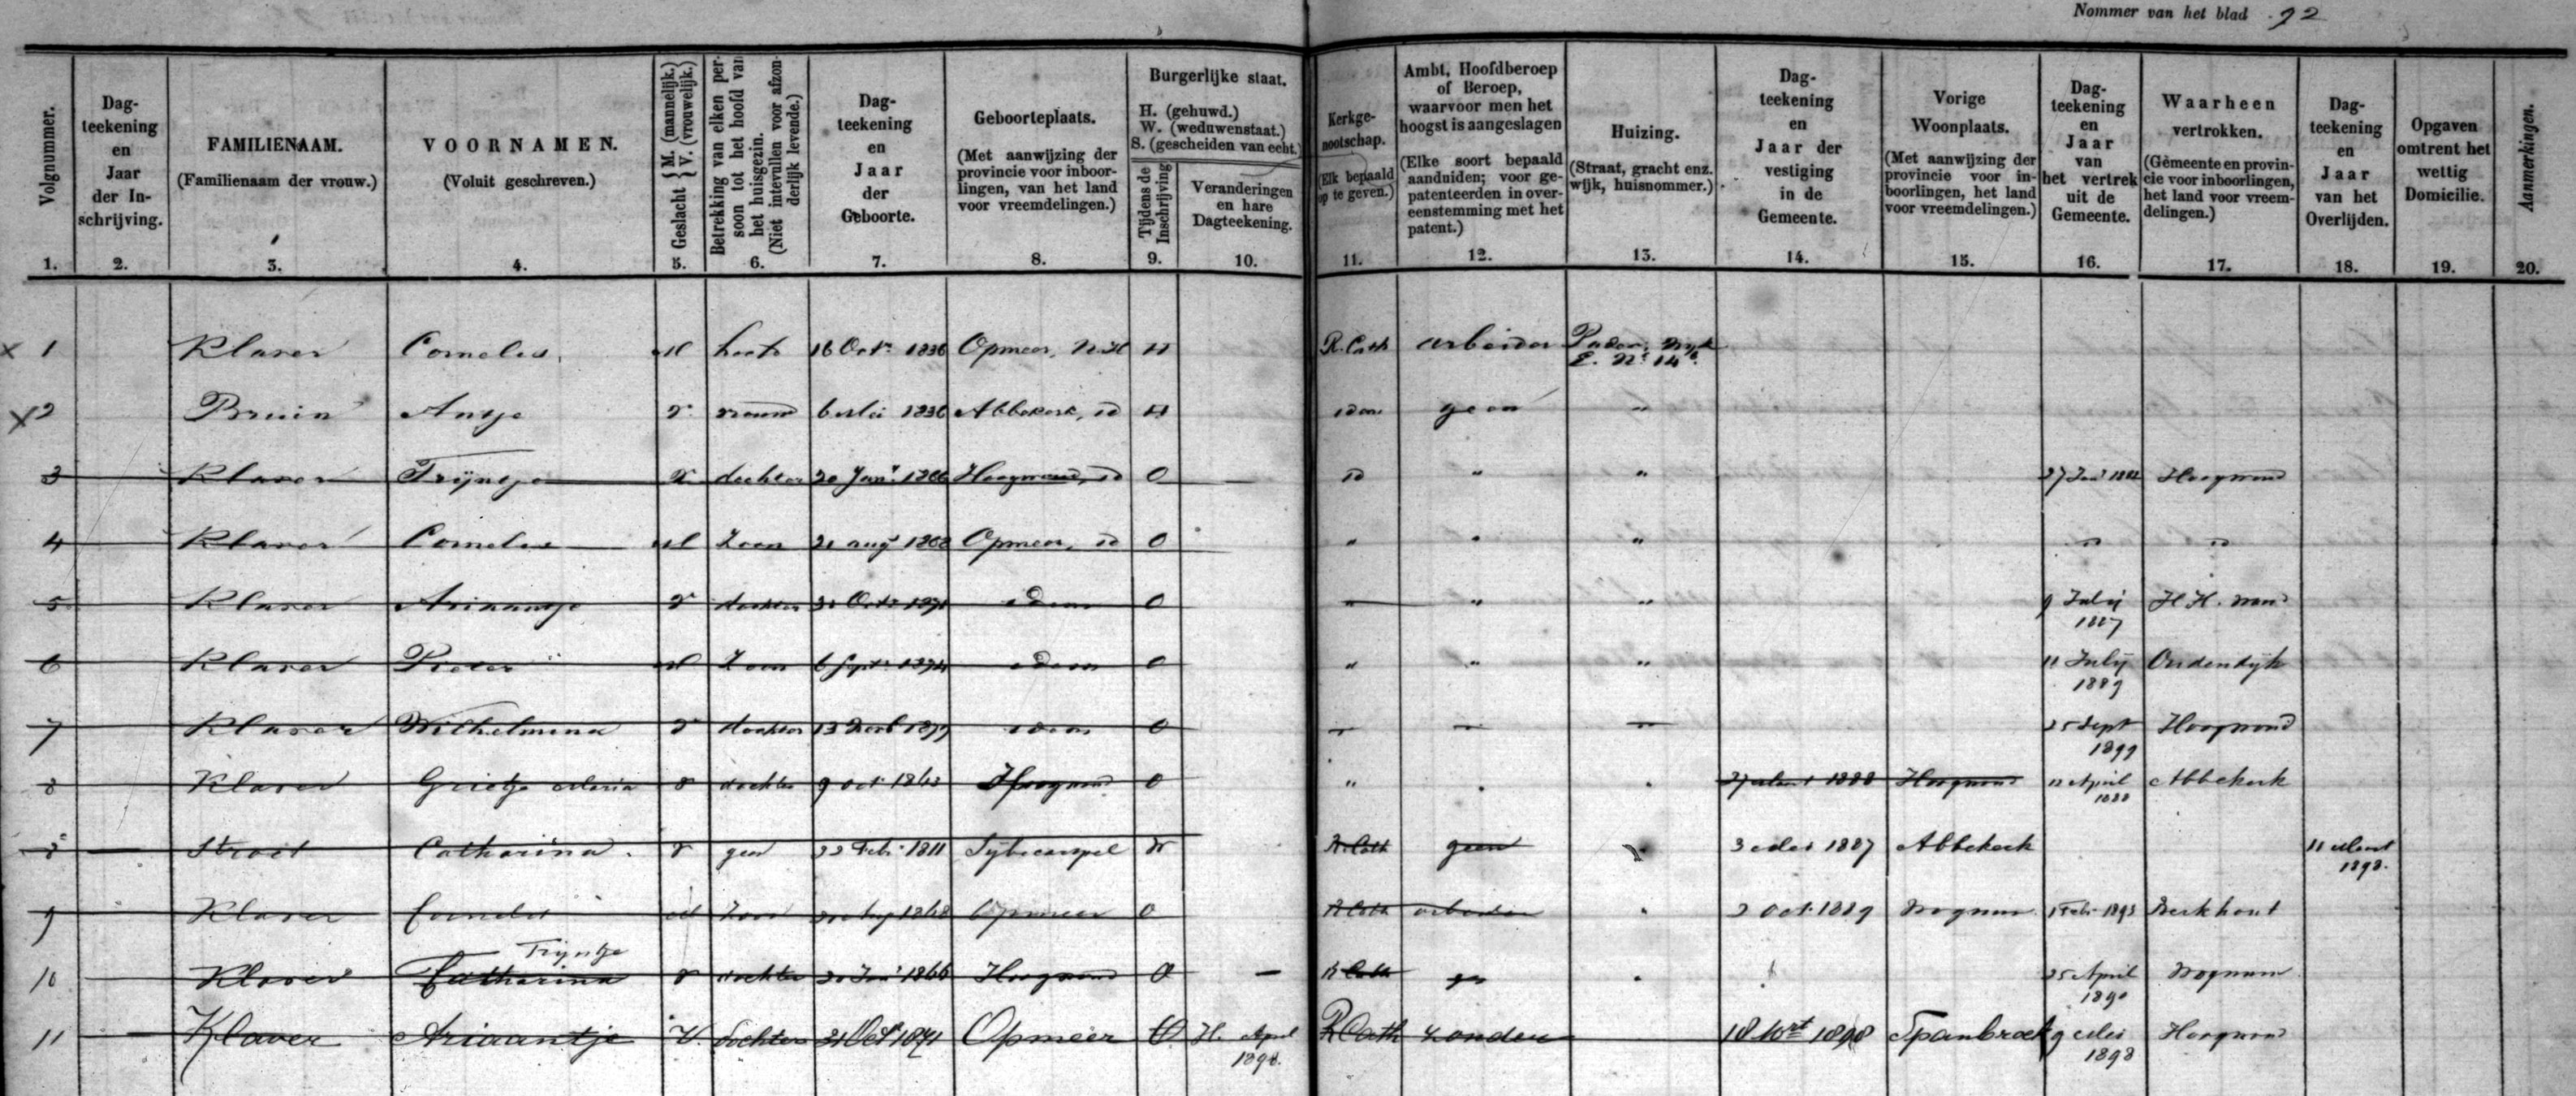 Nommer van het blad 92
Volgnummer. 1.
Dag-
teekening
en
Jaar
der In-
schrijving.
2.
FAMILIENAAM.
(Familienaam der vrouw.)
3.
VOORNAMEN.
(Voluit geschreven.)
4.
Geslacht { M. (mannelijk.) V. (vrouwelijk.)
5.
Betrekking van elken per-
soon tot het hoofd van
het huisgezin.
(Niet intevullen voor afzon-
derlijk levende.)
6.
Dag-
teekening
en
Jaar
der
Geboorte.
7.
Geboorteplaats.
(Met aanwijzing der
provincie voor inboor-
lingen, van het land
voor vreemdelingen.)
8.
Burgerlijke staat.
H. (gehuwd.)
W. (weduwenstaat.)
S. (gescheiden van echt.)
Tijdens de
Inschrijving
9.
Veranderingen
en hare
Dagteekening.
10.
Kerkge-
nootschap.
(Elk bepaald
op te geven.)
11.
Ambt, Hoofdberoep
of Beroep,
waarvoor men het
hoogst is aangeslagen
(Elke soort bepaald
aanduiden; voor ge-
patenteerden in over-
eenstemming met het
patent.)
12.
Huizing.
(Straat, gracht enz.
wijk, huisnommer.)
13.
Dag-
teekening
en
Jaar der
vestiging
in de
Gemeente.
14.
Vorige
Woonplaats.
(Met aanwijzing der
provincie voor in-
boorlingen, het land
voor vreemdelingen.)
15.
Dag-
teekening
en
Jaar
van
het vertrek
uit de
Gemeente.
16.
Waarheen
vertrokken.
(Gemeente en provin-
cie voor inboorlingen,
het land voor vreem-
delingen.)
17.
Dag-
teekening
en
Jaar
van het
Overlijden.
18.
Opgaven
omtrent het
wettig
Domicilie.
19.
Aanmerkingen.
20.
x 1 Klaver Cornelis M hoofd 16 Oct. 1836 Opmeer, NH H R. Cath arbeider
E. No 14
x 2 Bruin Antje V vrouw 6 Mei 1836 Abbekerk, id H idem geen "
3 Klaver Trijntje V dochter 20 Jan. 1866 Hoogwoud, id O id " " 27 Jan 1882 Hoogwoud
4 Klaver Cornelis M Zoon Aug 1868 Opmeer, id O " " " id id
5 Klaver Ariaantje V dochter 31 Oct. 1871 idem O " " " 9 Julij H.H. waard
1887
6 Klaver Pieter M Zoon 6 Sept. 1874 idem O " " " 11 Julij Oudendijk
1889
7 Klaver Wilhelmina V dochter 13 1879 idem O " " " 25 Sept Hoogwoud
1899
8 Klaver Grietje Maria V dochter 9 Oct 1863 Hoogwoud O " " " 1888 Hoogwoud 12 April Abbekerk
1888
8 Stroet Catharina V geen 22 Feb. 1811 Sijbecarspel W R. Cath geen " 3 Mei 1887 Abbekerk 11 Maart
1898.
9 Klaver Cornelis M Zoon Aug 1868 Opmeer O R Cath arbeider " 2 Oct. 1889 Wognum 1 Feb. 1893 Berkhout
Trijntje
10 Klaver Catharina V dochter 20 Jan 1866 Hoogwoud O R Cath " 25 April Wognum
1890
11 Klaver Ariaantje V. dochter 31 Oct 1871 Opmeer O H. April R Cath zonder 18 Mrt 1898 Spanbroek 9 Mei Hoogwoud
1898. 1898